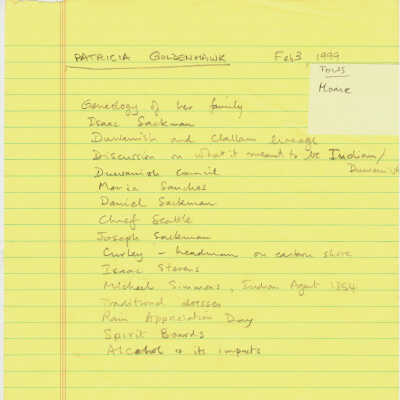 PATRICIA GOLDENHAWK Feb 3, 1999
TOLLS
Moore
Geneology of her family
Isaac Sackman
Duwamish and Clallam lineage
Discussion on what it meant to be Indian/
Duwamish
Duwamish Council
Maria Sanchez
Daniel Sackman
Chief Seattle
Joseph Sackman
Curley - headman on eastern shore
Isaac Stevens
Michael Simmons, Indian Agent 1854
Traditional dresses
Rain Appreciation Day
Spirit Boards
Alcohol & its impacts